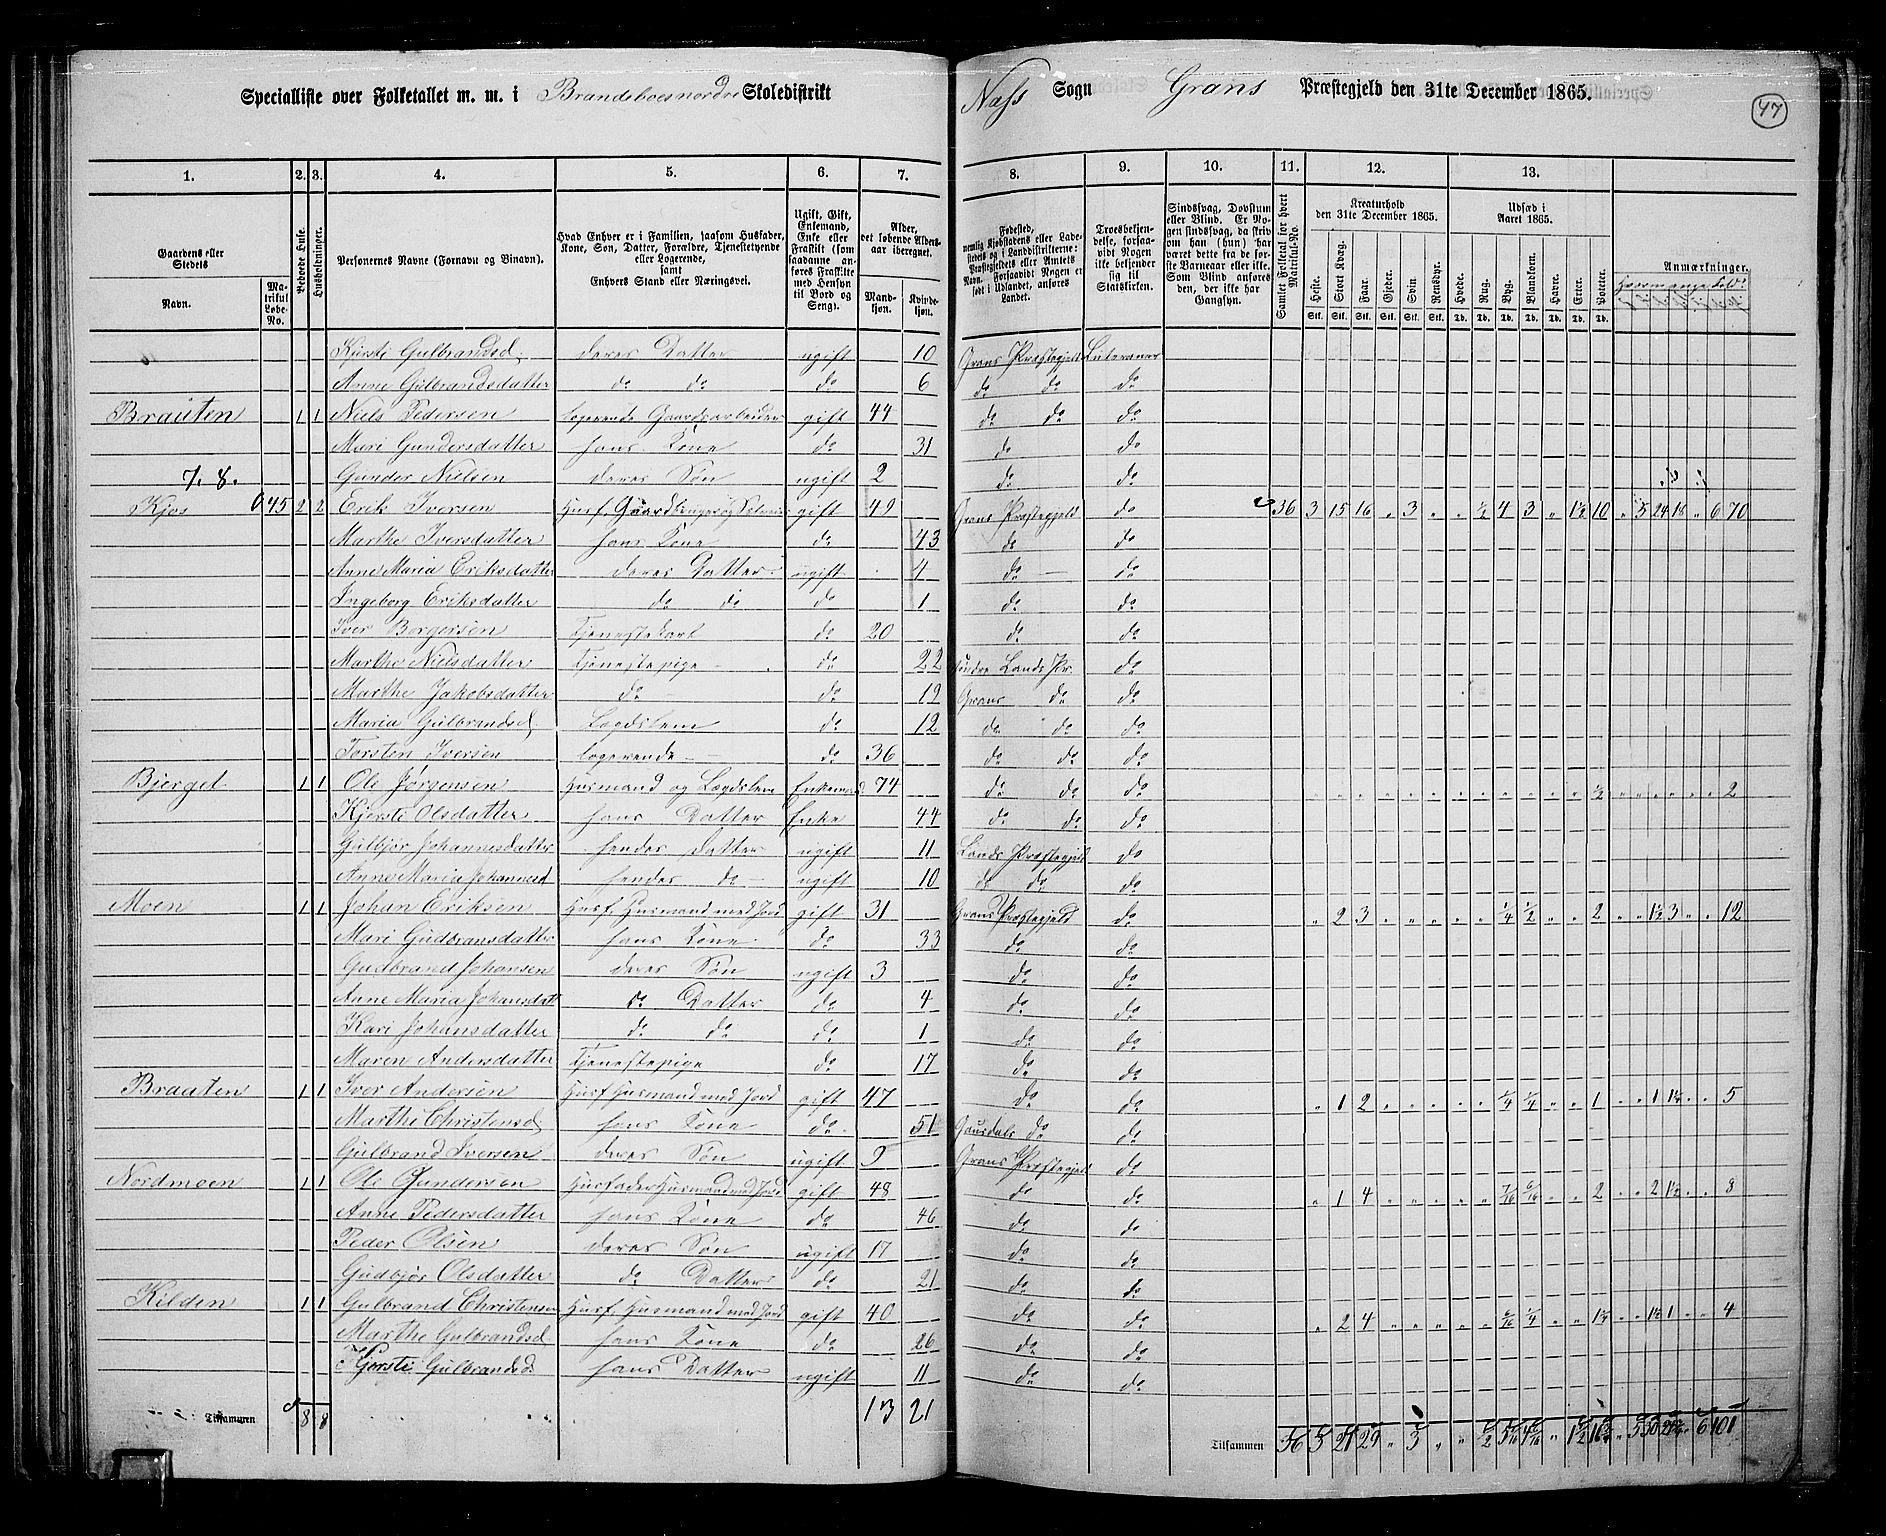 Specialliste over Folketallet m. m. i Brandeboesnordre Skoledistrikt Næss Sogn Grans Præstegjeld den 31te December 1865. 47
1. 2. 3. 4. 5. 6. 7. 8. 9. 10. 11. 12. 13.
Gaardens eller Stedets Navn. Matrikul Løbe-No.
Beboede Huse.
Husholdninger.
Personernes Navne (Fornavn og Binavn).
Hvad Enhver er i Familien, saasom Husfader, Kone, Søn, Datter, Forældre, Tjenestetyende eller Logerende, samt Enhvers Stand eller Næringsvei.
Ugift, Gift, Enkemand, Enke eller Fraskilt (som saadanne anføres Fraskilte med Hensyn til Bord og Seng).
Alder, det løbende Aldersaar iberegnet. Mandkjøn. Kvindekjøn.
Fødested, nemlig Kjøbstadens eller Ladestedets og i Landdistrikterne: Præstegjeldets eller Amtets Navn. Forsaavidt Nogen er født i Udlandet, anføres Landet.
Troesbekjendelse, forsaavidt Nogen ikke bekjender sig til Statskirken.
Sindssvag, Døvstum eller Blind. Er Nogen sindssvag, da skriv om han (hun) har været dette fra de første Barneaar eller ikke. Som Blind anføres den, der ikke har Gangsyn.
Samlet Folketal for hvert Matrikul-No.
Kreaturhold den 31te December 1865. Heste. Stort Kvæg. Faar. Gjeder. Svin. Rensdyr.
Udsæd i Aaret 1865. Hvede. Rug. Byg. Blandkorn. Havre. Erter. Poteter.
Anmærkninger.
Kirsti Gulbrandsd. deres Datter ugift 10 Grans Præstegjeld Luteraner
Anne Gulbrandsdatter do do do 6 do do do
Brauten 1 1 Niels Pedersen logerende Gaardsarbeider gift 44 do do do
Mari Gundersdatter hans Kone do 31 do do
7. 8. Gunder Nielsen deres Søn ugift 2 do do
Kjos 45 2 2 Erik Iversen Husf. Gaardbruger og Selveier gift 49 Grans Præstegjeld do 36 3 15 16 „ 3 „ „ ½ 4 3 „ 1½ 10 „ 5 24 18 „ 6 70
Marthe Iversdatter hans Kone do 43 do do
Anne Maria Eriksdatter deres Datter ugift 4 do do
Ingeborg Eriksdatter do do do 1 do do
Iver Borgersen Tjenestekarl do 20 do do
Marthe Nielsdatter Tjenestepige do 22 Søndre Lands Pr. do
Marthe Jakobsdatter do do 19 Grans do do
Maria Gulbrandsd. Lægdslem do 12 do do do
Torsten Iversen logerende do 36 do do do
Bjerget 1 1 Ole Jørgensen Husmand og Lægdslem Enkemand 74 do do do ½ 2
Kjersti Olsdatter hans Datter Enke 44 do do do
Gulbjør Johannesdatter hendes Datter ugift 11 Lands Præstegjeld do
Anne Maria Johannesd hendes do ugift 10 do do do
Moen 1 1 Johan Eriksen Husf. Husmand med Jord gift 31 Grans Præstegjeld do „ 2 3 „ „ „ „ „ ¼ ½ „ „ 2 „ „ 1½ 3 „ „ 12
Mari Gudbransdatter hans Kone do 33 do do
Gudbrand Johansen deres Søn ugift 3 do do
Anne Maria Johansdatt do Datter do 4 do do
Kari Johansdatter do do do 1 do do
Maren Andersdatter Tjenestepige do 17 do do
Braaten 1 1 Iver Andersen Husf. Husmand med Jord gift 47 do do „ 1 2 „ „ „ „ „ ¼ ¼ „ „ 1 „ „ 1 1¼ „ „ 5
Marthe Christensd. hans Kone do 51 Gausdals do do
Gulbrand Iversen deres Søn ugift 9 Grans Præstegjeld do
Nordmoen 1 1 Ole Gundersen Husfader Husmand med Jord gift 48 do do „ 1 4 „ „ „ „ „ 7/16 6/16 „ „ 2 „ „ 2 1½ „ „ 8
Anne Pedersdatter hans Kone do 46 do do
Peder Olsen deres Søn ugift 17 do do
Gudbjør Olsdatter do Datter do 21 do do
Kilden 1 1 Gulbrand Christensen Husf. Husmand med Jord gift 40 do do „ 2 4 „ „ „ „ „ 6/16 ¼ „ „ 1¼ „ „ 1½ 1 „ „ 4
Marthe Gulbrandsd. hans Kone do 26 do do
Kjersti Gulbrandsd. hans Datter ugift 11 do do
Tilsammen 8 8 13 21 Tilsammen 36 3 21 29 „ 3 „ „ ½ „ 1½ 6 101